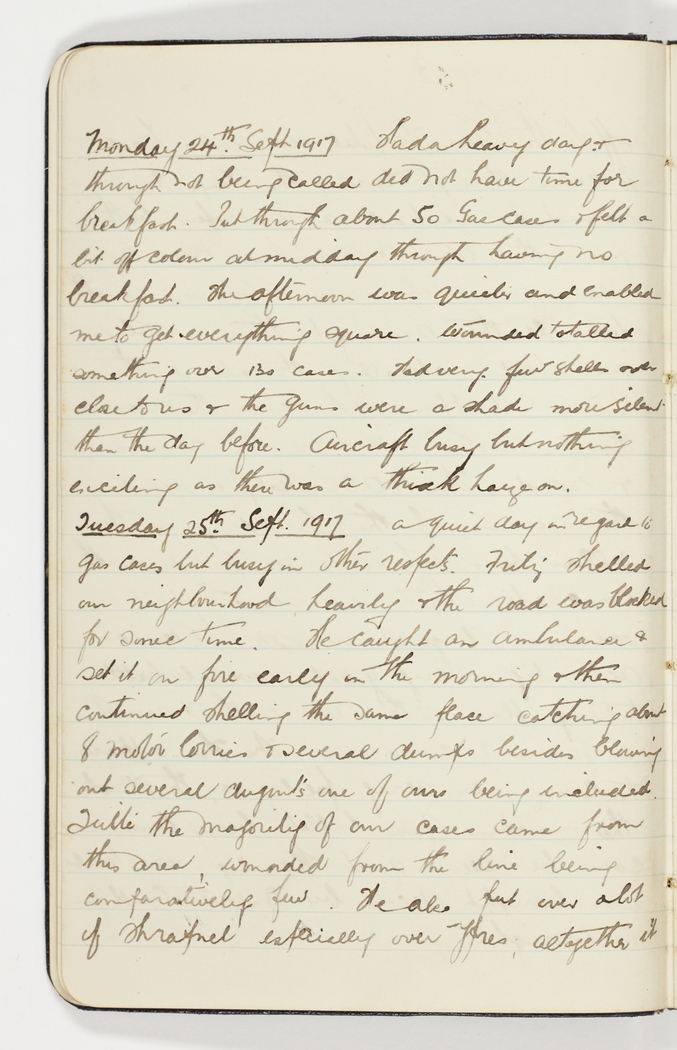 Monday 24th Sept 1917 Had a heavy day &
through not being called did not have time for
breakfast. Put through about 50 Gas cases & felt a
bit off colour at midday through having no
breakfast. The afternoon was quieter and enabled
me to get everything square. Wounded totalled
something over 130 cases. Had very few shells over
close to us & the guns were a shade more silent
than the day before. Aircraft busy but nothing
exciting as there was a thick haze on.
Tuesday 25th Sept. 1917 a quiet day in regard to
gas cases but busy in other respects. Fritz shelled
our neighbourhood heavily & the road was blocked
for some time. He caught an ambulance &
set it on fire early in the morning & then
continued shelling the same place catching about
8 motor lorries & several dumps besides blowing
out several dugouts one of ours being included.
the majority of our cases came from
this area, wounded from the line being
comparatively few. He also put over a lot
of shrapnel especially over Ypres, altogether it